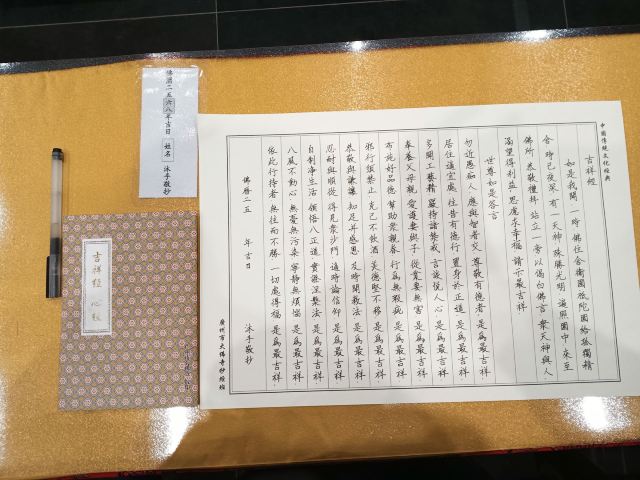 中國傳統文化經典
吉祥經
如是我聞 一時 佛住舍衛國祇陀園給孤獨精
舍 時已夜深 有一天神 殊勝光明 遍照園中 來至
佛所 恭敬禮拜 站立一旁 以偈白佛言 眾天神與人
渴望得利益 思慮求幸福 請示最吉祥
世尊如是答言
勿近愚痴人 應與智者交 尊敬有德者 是為最吉祥
居住適宜處 往昔有德行 置身於正道 是為最吉祥
多聞工藝精 嚴持諸禁戒 言談悅人心 是為最吉祥
奉養父母親 愛護妻與子 從業要無害 是為最吉祥
布施好品德 幫助眾親眷 行為無瑕疵 是為最吉祥
邪行須禁止 克己不飲酒 美德堅不移 是為最吉祥
恭敬與謙讓 知足并感恩 及時聞教法 是為最吉祥
忍耐與順從 得見眾沙門 適時論信仰 是為最吉祥
自制淨生活 領悟八正道 實證涅槃法 是為最吉祥
八風不動心 無憂無污染 寧靜無煩惱 是為最吉祥
依此行持者 無往而不勝 一切處得福 是為最吉祥
佛曆二五 年 吉日 沐手敬抄
廣州市大佛寺抄經
佛曆二五六八年吉日 姓名 沐手敬抄
吉祥經 心經